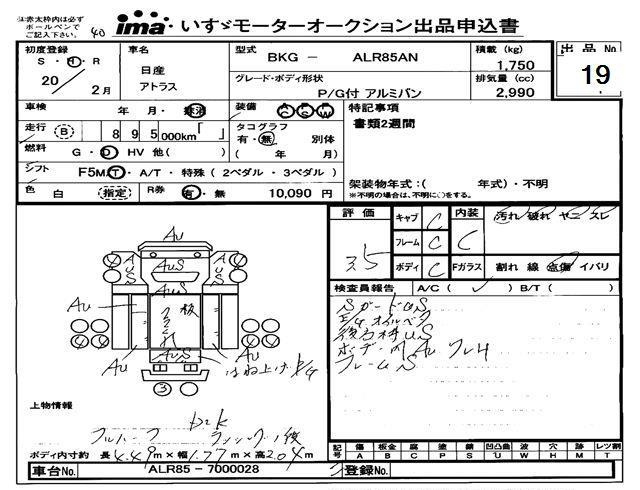 注:赤太枠内は必ず
ボールペンで
ご記入下さい。
40
ima いすゞモーターオークション出品申込書
初度登録
S・H・R
20 / 2月
車名
日産
アトラス
型式
BKG － ALR85AN
グレード・ボディ形状
P/G付 アルミバン
積載 (kg)
1,750
排気量 (cc)
2,990
出品No
19
車検 年・月・抹消
装備
走行 (B) 8 9 5,000km「 」
タコグラフ
有・無 別体
( 年 月)
燃料 G・D HV 他( )
シフト F5M/T・A/T・特殊(2ペダル・3ペダル)
色 白 (指定) R券 有・無 10,090 円
特記事項
書類2週間
架装物年式:( 年式)・不明
※不明の場合は、不明に○をする。
評価
3.5
キャブ C
フレーム C
ボディ C
内装 C
汚れ 破れ ヤニ スレ
Fガラス 割れ 線 点傷 イバリ
検査員報告 A/C( ✓ ) B/T( )
SガードUS
フレームS
AU
AUS
AU
AU
板
AU
AU
AUS
はね上げP/G
4
4
4
4
3
上物情報
フルハーフ
ボディ内寸約 長4.49m×幅1.77m×高2.04m
車台No. ALR85－7000028
記号 傷 板金 腐 塗 錆 凹凸曲 波 穴 跡 レツ割
A B C P S U W H M T
登録No.